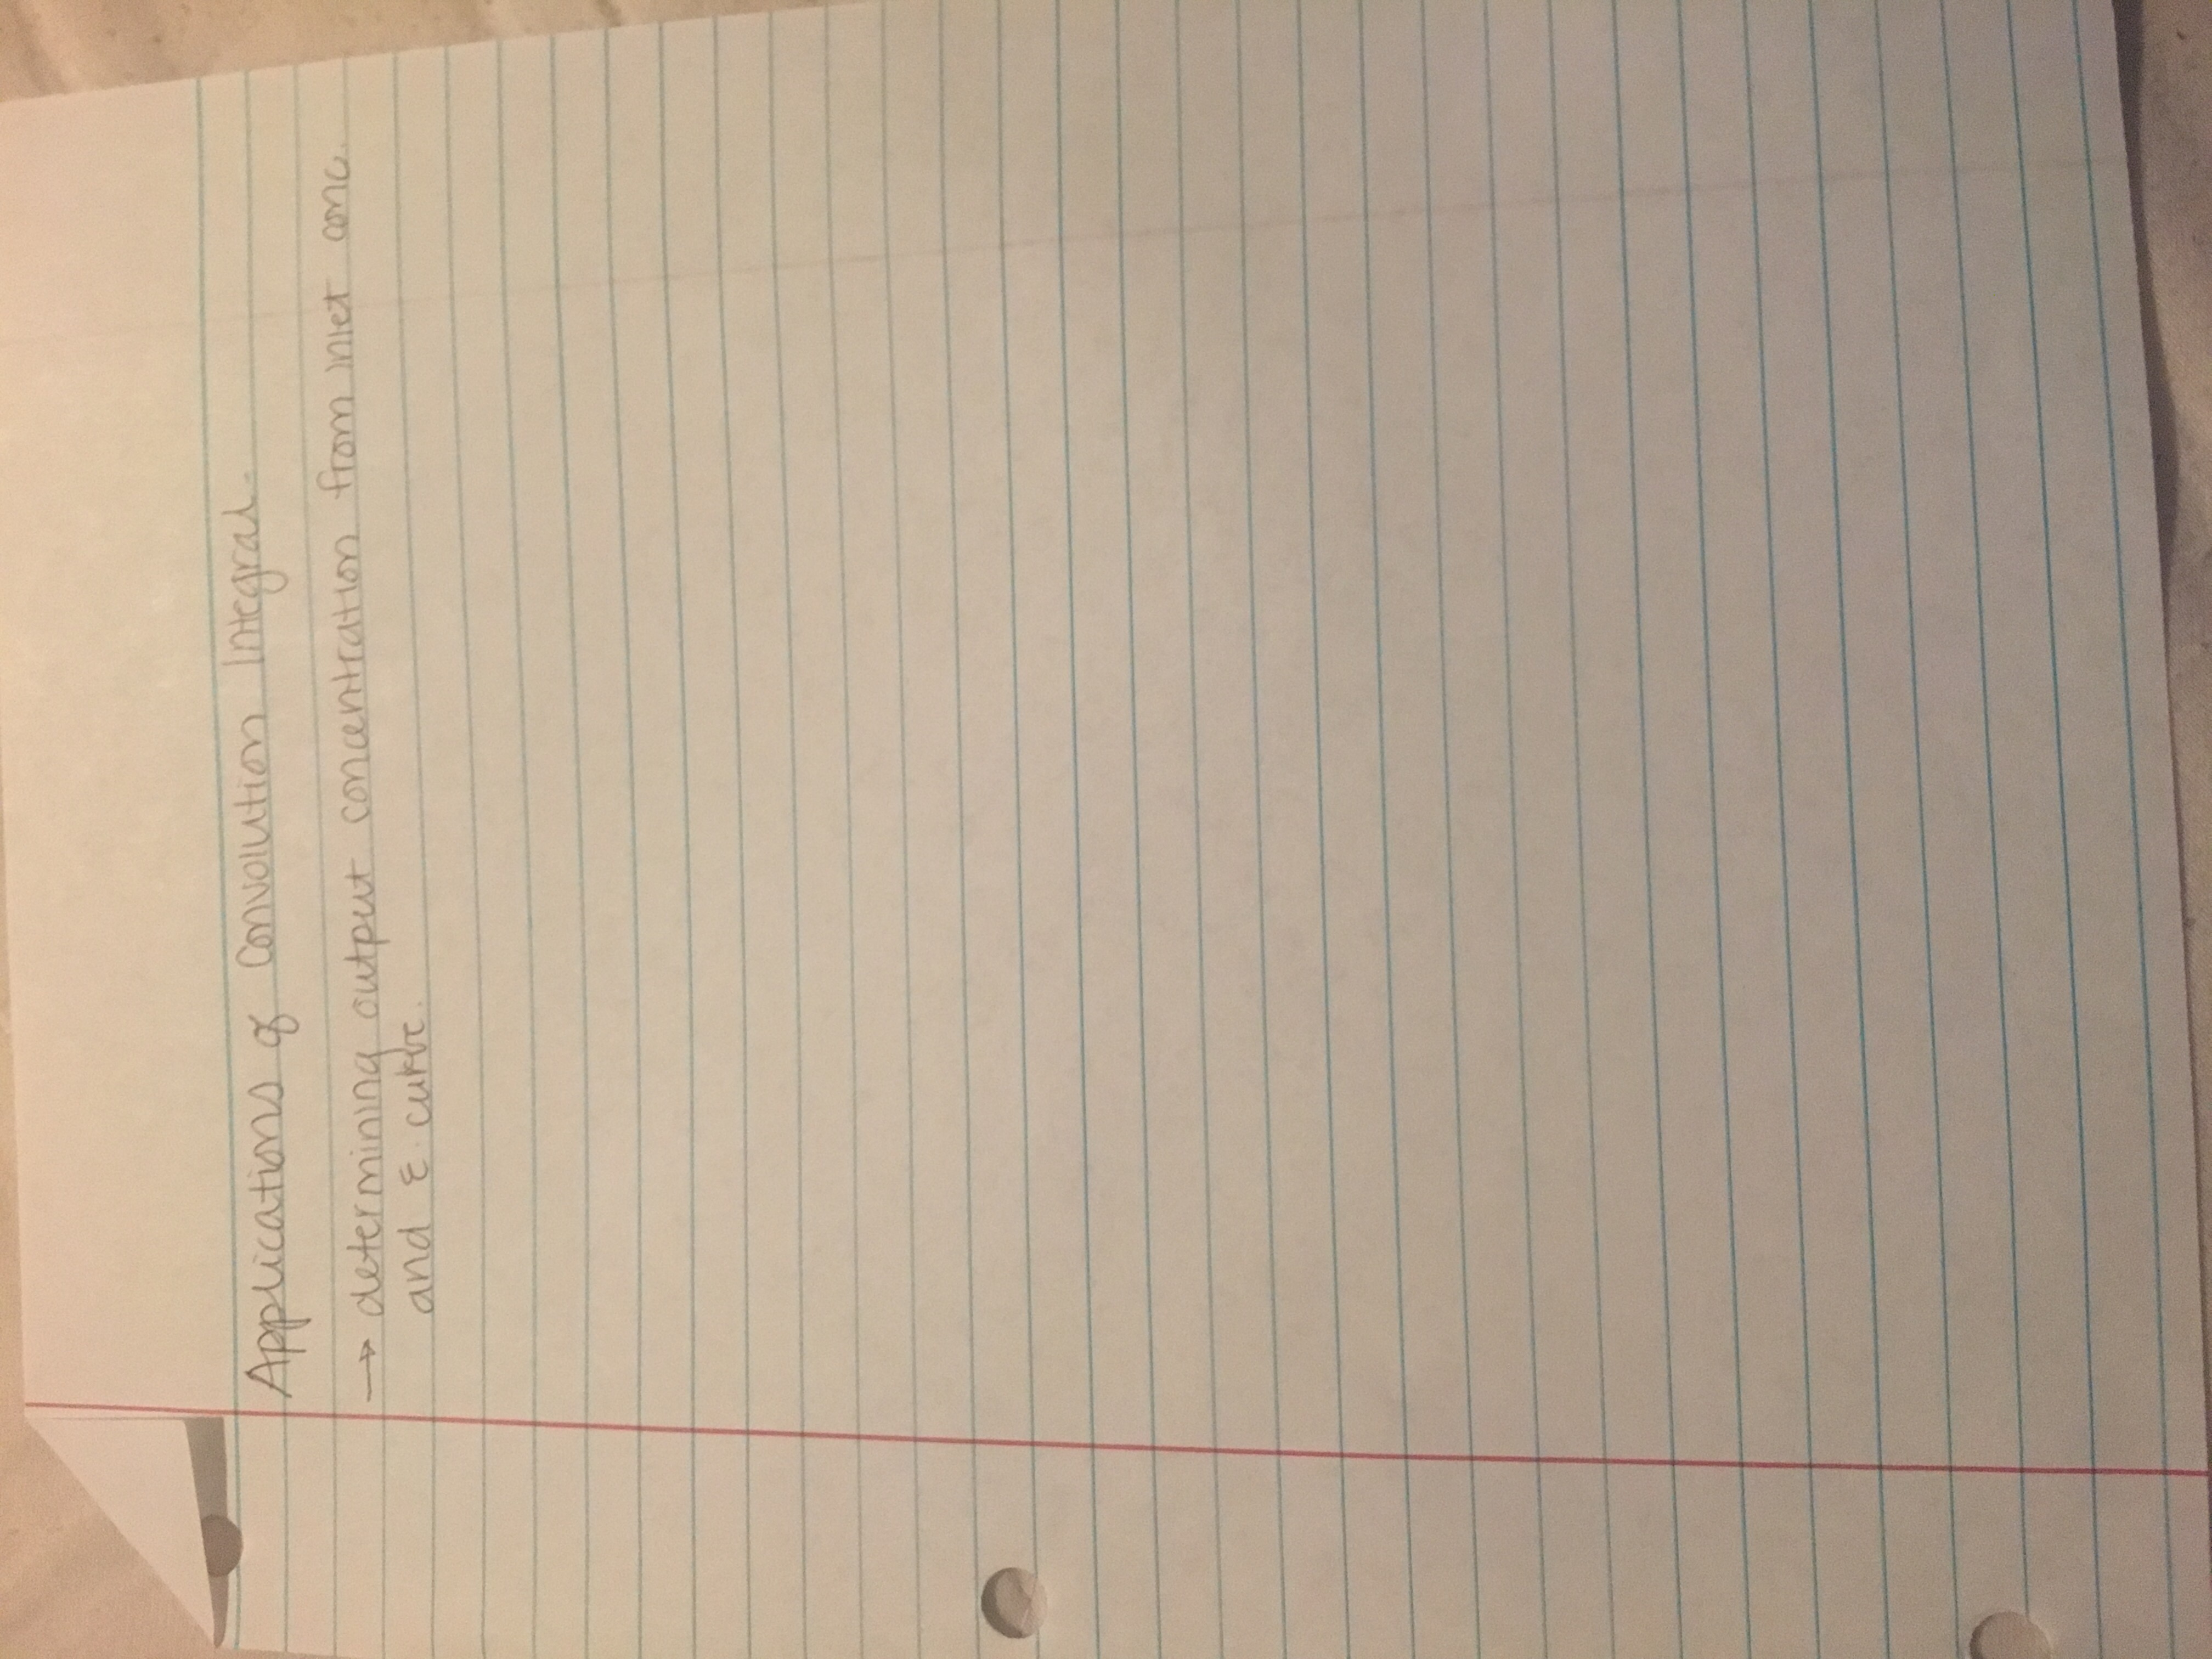 Applications of Convolution Integral
→ determining output concentration from inlet conc.
and E curve.